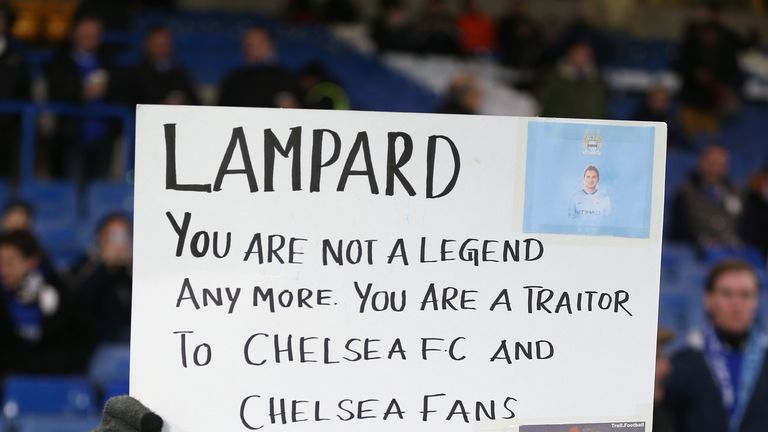 LAMPARD
YOU ARE NOT A LEGEND
ANY MORE. YOU ARE A TRAITOR
TO CHELSEA F.C AND
CHELSEA FANS
Troll.Football